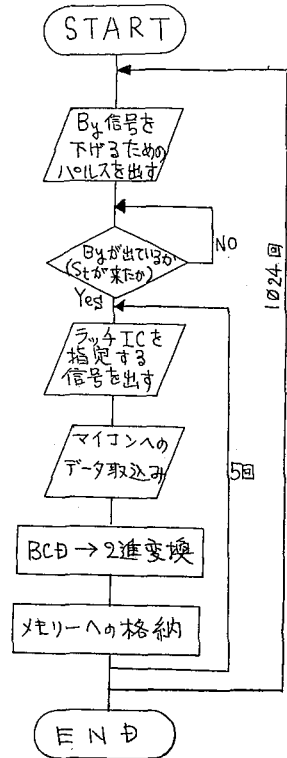 START
By信号を
下げるための
パルスを出す
Byが出ているか
(Stが来たか)
NO
Yes
ラッチICを
指定する
信号を出す
マイコンへの
データ取込み
BCD→2進変換
メモリーへの格納
5回
1024回
END